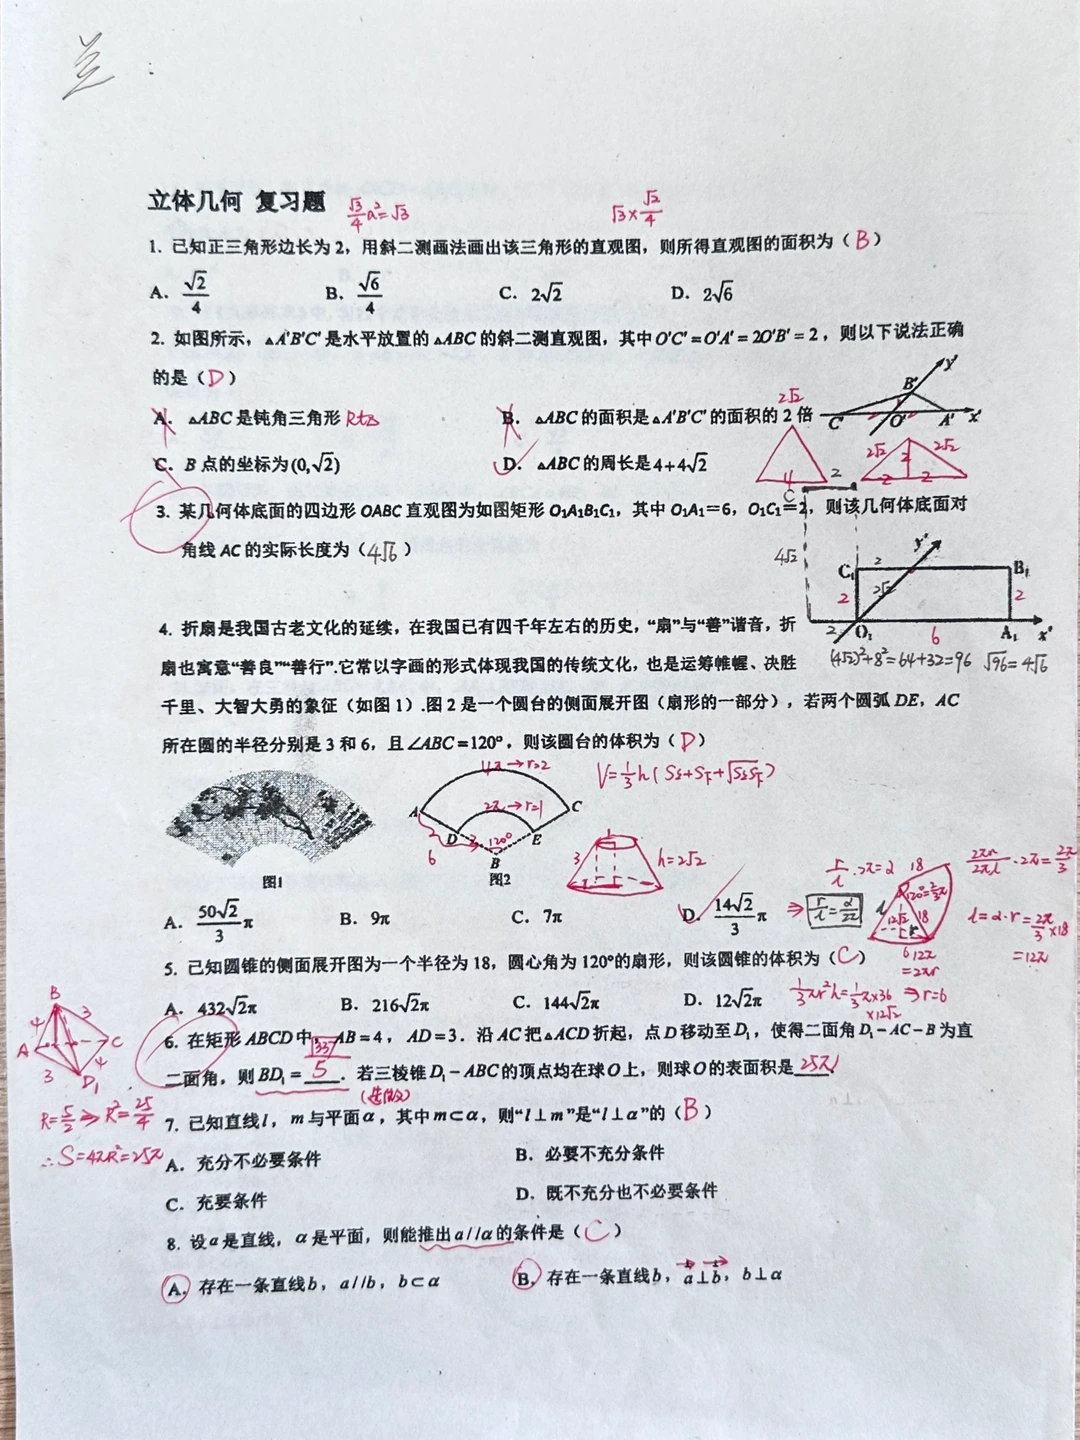 兰:
立体几何 复习题
√3/4 a²=√3
√3×√2/4
1. 已知正三角形边长为 2，用斜二测画法画出该三角形的直观图，则所得直观图的面积为（ B ）
A. √2/4 B. √6/4 C. 2√2 D. 2√6
2. 如图所示，▵A'B'C' 是水平放置的 ▵ABC 的斜二测直观图，其中 O'C' = O'A' = 2O'B' = 2，则以下说法正确
的是（ D ）
A. ▵ABC 是钝角三角形 Rt△ B. ▵ABC 的面积是 ▵A'B'C' 的面积的 2 倍
C. B 点的坐标为 (0,√2) D. ▵ABC 的周长是 4+4√2
y' B' C' O' A' x'
2√2 4
2√2 2√2 2 2 2
3. 某几何体底面的四边形 OABC 直观图为如图矩形 O₁A₁B₁C₁，其中 O₁A₁=6，O₁C₁=2，则该几何体底面对
角线 AC 的实际长度为（ 4√6 ）
C 2 4√2 y' C₁ 2 B₁ 2 2√2 2 2 O₁ 6 A₁ x'
(4√2)²+8²=64+32=96 √96=4√6
4. 折扇是我国古老文化的延续，在我国已有四千年左右的历史，“扇”与“善”谐音，折
扇也寓意“善良”“善行”.它常以字画的形式体现我国的传统文化，也是运筹帷幄、决胜
千里、大智大勇的象征（如图 1）.图 2 是一个圆台的侧面展开图（扇形的一部分），若两个圆弧 DE，AC
所在圆的半径分别是 3 和 6，且 ∠ABC=120°，则该圆台的体积为（ D ）
V=1/3 h（S上+S下+√S上S下）
4π→r=2
2π→r=1
A C D E 3 6 120° B
1 3 h=2√2
图1 图2
A. 50√2/3 π B. 9π C. 7π D. 14√2/3 π
r/l ·2π=α
⇒ r/l=α/2π
18 120°=2/3π l 12√2 18 r 6 12π
=2πr
⇒r=6
2πr/2πl ·2π=2π/3
l=α·r=2π/3×18
=12π
5. 已知圆锥的侧面展开图为一个半径为 18，圆心角为 120°的扇形，则该圆锥的体积为（ C ）
A. 432√2π B. 216√2π C. 144√2π D. 12√2π
1/3πr²h=1/3π×36
×12√2
6. 在矩形 ABCD 中，AB=4，AD=3．沿 AC 把 ▵ACD 折起，点 D 移动至 D₁，使得二面角 D₁-AC-B 为直
二面角，则 BD₁ = 5 ．若三棱锥 D₁-ABC 的顶点均在球 O 上，则球 O 的表面积是 25π .
B 4 3 A C 3 4 D₁
R=5/2⇒R²=25/4
∴S=4πR²=25π
7. 已知直线 l，m 与平面 α，其中 m⊂α，则“l⊥m”是“l⊥α”的（ B ）
A. 充分不必要条件 B. 必要不充分条件
C. 充要条件 D. 既不充分也不必要条件
8. 设 a 是直线，α 是平面，则能推出 a//α 的条件是（ C ）
A. 存在一条直线 b，a//b，b⊂α B. 存在一条直线 b，a⊥b，b⊥α